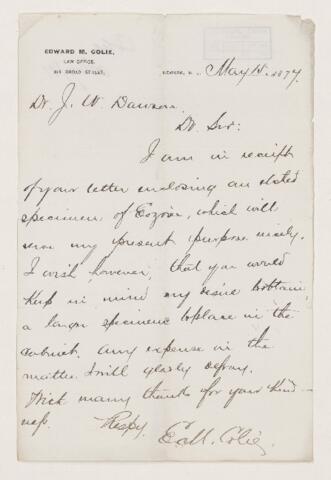 EDWARD M. COLIE,
LAW OFFICE,
BROAD STREET,
NEWARK, N. May 1877
Dr. J. W. Dawson.
Dr Sir:
I am in receipt
of your letter enclosing an etched
specimen of Eozoön, which will
serve my present purpose nicely.
I wish, however, that you would
keep in mind my desire to obtain
a larger specimen to place in the
cabinet. Any expense in the
matter I will gladly defray.
With many thanks for your kind-
ness.
Respy.
E. M. Colie